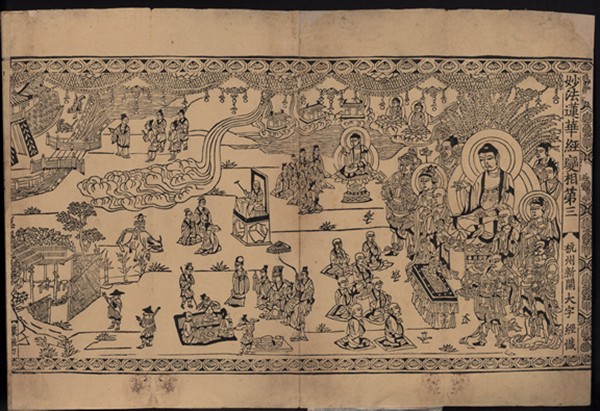 妙法蓮華經變相第三
杭州新開大字經